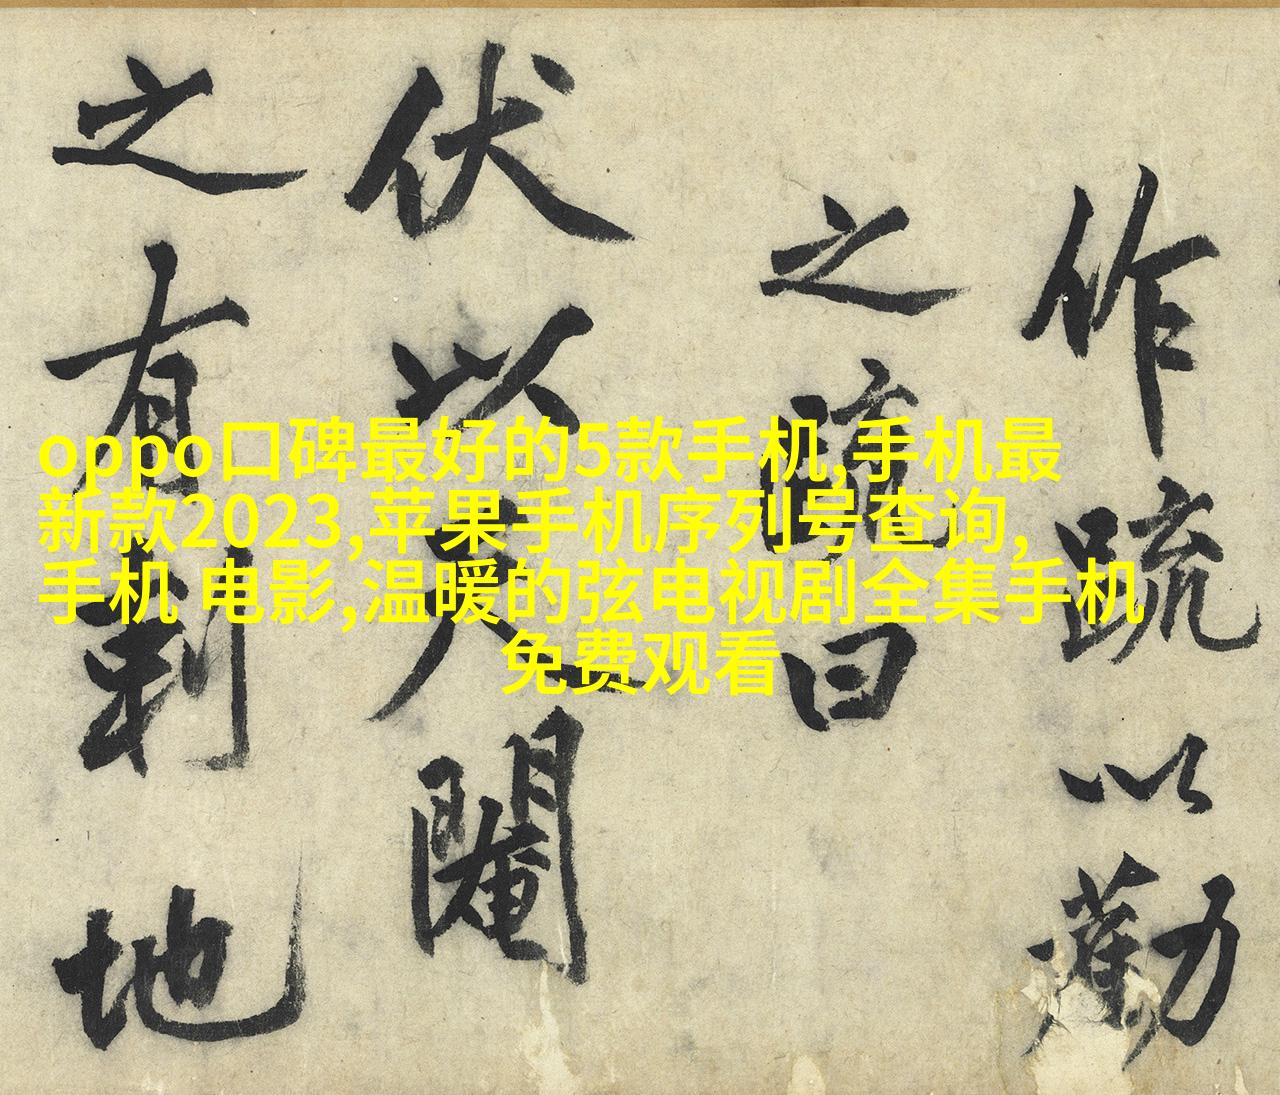 作疏以勸
之疏曰
伏以天閹
之有刹地
oppo口碑最好的5款手机,手机最
新款2023,苹果手机序列号查询,
手机 电影,温暖的弦电视剧全集手机
免费观看